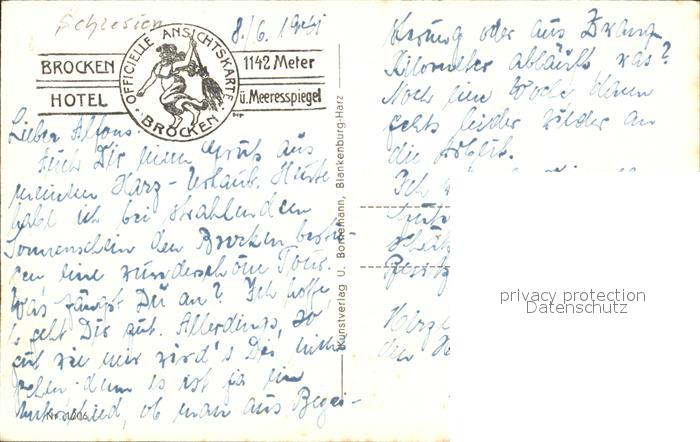 Schierke
8./6. 1941
OFFICIELLE ANSICHTSKARTE
BROCKEN
BROCKEN 1142 Meter
HOTEL ü. Meeresspiegel
Lieber Alfons.
Auch Dir einen Gruß aus
meinem Harz-Urlaub. Heute
habe ich bei strahlendem
Sonnenschein den Brocken bestie-
gen eine wunderschöne Tour.
Was fängst Du an? Ich hoffe
es geht Dir gut. Allerdings, so
gut wie mir wird's Dir
gehen denn es ist ja ein
Unterschied, ob man aus Begei-
sterung oder aus Zwang
Kilometer abläuft was?
Noch eine Woche dann
geht's leider wieder an
die Arbeit.
Ich
Herzl
Kunstverlag U. Bornemann, Blankenburg-Harz
privacy protection
Datenschutz